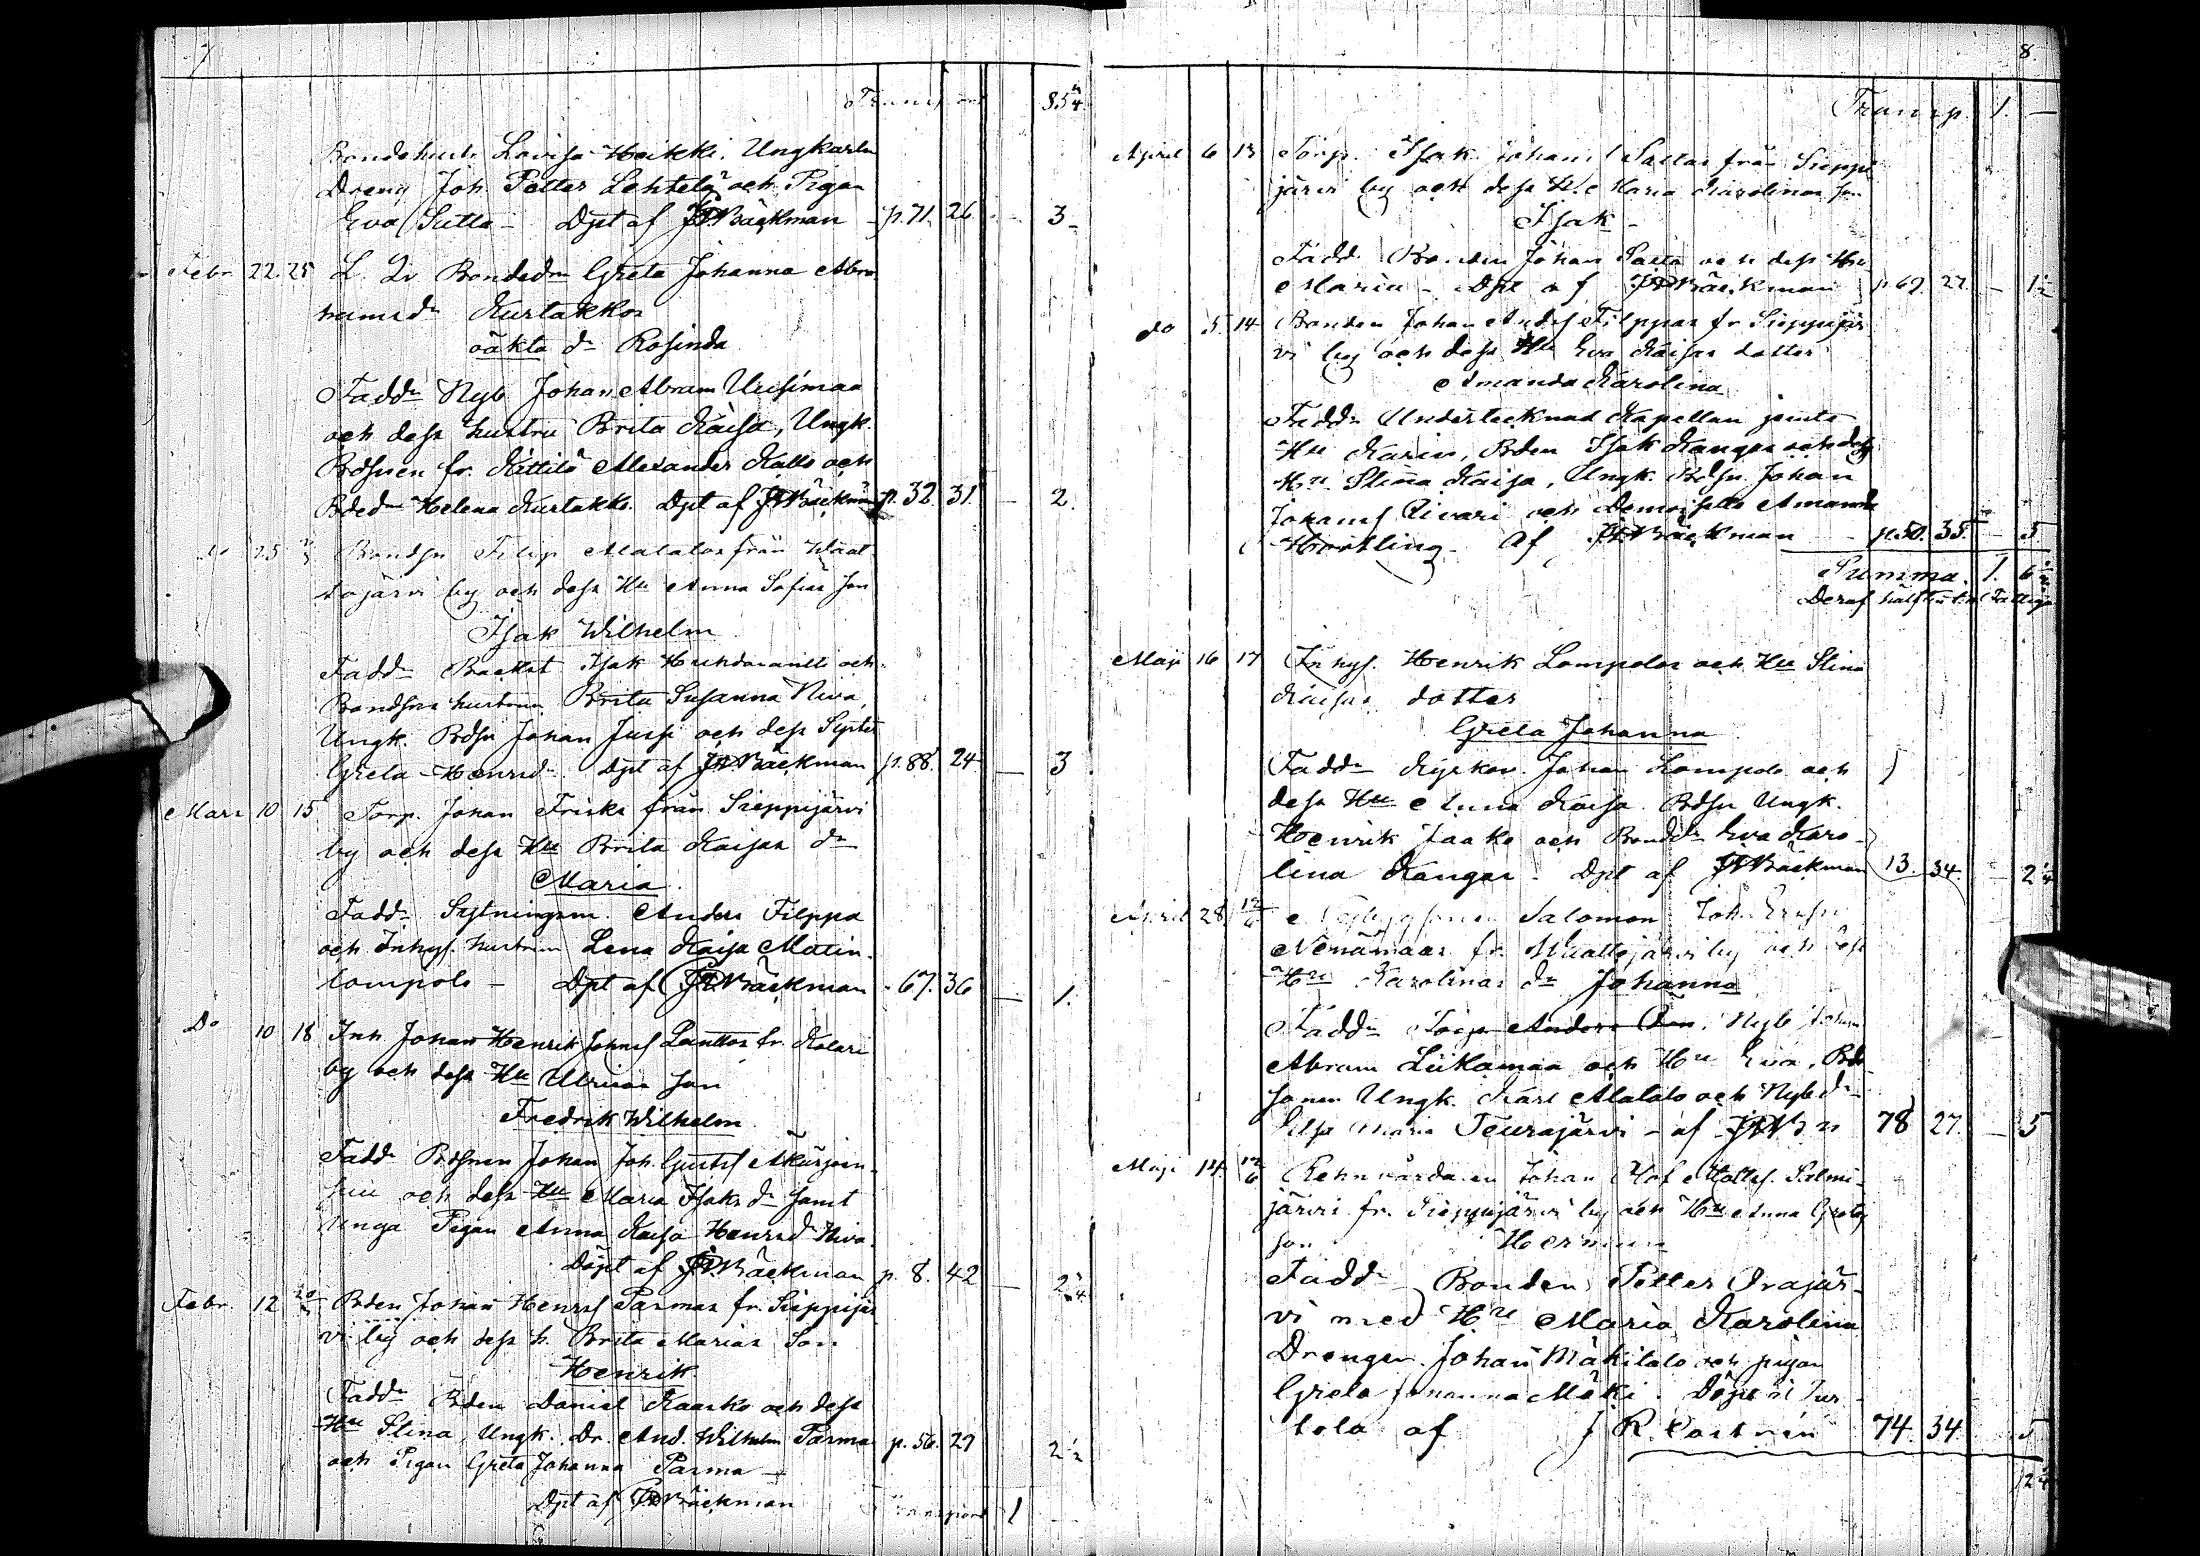 7
Transport 35 1/4
Bondehust. Lovisa Heikki. Ungkarln
Dreng Joh. Petter Lehtelä och Pigan
Eva Sutta – Dpt af Bäckman p. 71. 26. – 3 –
Febr. 22. 25 L. Qv Bondedn Greta Johanna Abra
hamsdn Kurtakkos
oäkta dn Rosinda
Faddn Nyb Johan Abram Uusimaa
och dess hustru Brita Kaisa, Ungk.
Bdsnen fr. Kittilä Alexander Kallo och
Bdedn Helena Kurtakko. Dpt af Bäckman p. 32. 31. – 2.
do 25 Bondsn Filip Alatalos från Waat
tojärvi by och dess Hu Anna Sofias son
Isak Wilhelm
Faddn Isak och
Bondsns hustrun Brita Susanna Niva,
Ungk. Bdsn Johan Jussi och dess Syster
Greta Henrsdn Dpt af Bäckman p. 88. 24 – 3
Mars 10 15 Torp. Johan Friska från Sieppijärvi
by och dess Hu Brita Kaisas dn
Maria
Faddn Sextningsm. Anders Filppa
och Inhys. hustrun Lena Kaisa Matin
lompolo – Dpt af Bäckman 67. 36 – 1.
Do 10 18 Inh Johan Henrik Johns Lanttos fr. Kolari
by och dess Hu Ulricas son
Fredrik Wilhelm
Faddn Bdsnen Johan Joh. Gustfs Äkäsjoen
suu och dess Hu Maria Isaksdn samt
unga Pigan Anna Kaisa Henrsd Niva.
Döpt af Bäckman p. 8. 42 – 2 1/4
Febr. 12 20 Bden Johan Henrs Parmas fr. Sieppijär
vi by och dess h. Brita Marias Son
Henrik
Faddn Bden Daniel Kaarko och dess
Hu Stina, Ungk. Dr. And. Wilhelm Parma p. 56. 29 2 1/2
och Pigan Greta Johanna Parma –
Dpt af Bäckman Transport 1
8.
Transp. 1. –
April 6 13 Torp. Isak Johans Saitas från Sieppi
järvi by och dess H. Maria Karolinas son
Isak –
Faddn Bonden Johan Saita och dess Hu
Maria – Dpt af Bäckman p 69. 27. – 1 1/2
do 5 14 Bonden Johan Anders Filppas fr Sieppijär
vi by och dess Hu Eva Kaisas dotter
Amanda Karolina
Faddn Undertecknad Kapellan jemte
Hu Karin, Bden Isak Kangas och dess
Hu Stina Kaisa, Ungk. Bdsn Johan
Johans Rivari och Demoiselle Amanda
Af Bäckman – p. 50. 35. – 5
Summa. 1. 6 1/2
Deraf hälften till Fattige
Maji 16 17 Inhys. Henrik Lompolos och Hu Stina
Kaisas dotter
Greta Johanna
Faddn Kyrkov. Johan Lompolo och
dess Hu Anna Kaisa. Bdsn Ungk.
Henrik Jaako och Bonddn Eva Karo-
lina Kangas. Dpt af Bäckman 13. 34 – 2 1/4
April 28 12/6 Nybyggsonen Salomon Joh. Erss
Venämaas fr. Waattojärvi by och dess
Hu Karolinas dn Johanna
Faddn Torp Anders Nyb Johan
Abram Liikamaa och Hu Eva, Bde-
sonen Ungk. Karl Alatalo och Nybdn
Maria Teurajärvi – af 78 27. – 5
Maji 14. 12/6 Rehnvårdaren Johan Olof Matts. Salmi-
järvi fr. Sieppijärvi by och Hu Anna Gretas
son Herman
Faddn Bonden Petter Orajär-
vi med Hu Maria Karolina
Drengen Johan Mäkitalo och pigan
Greta Johanna Mäki. Döpt i Tur-
tola af J R Castrén 74. 34 5
12 1/4